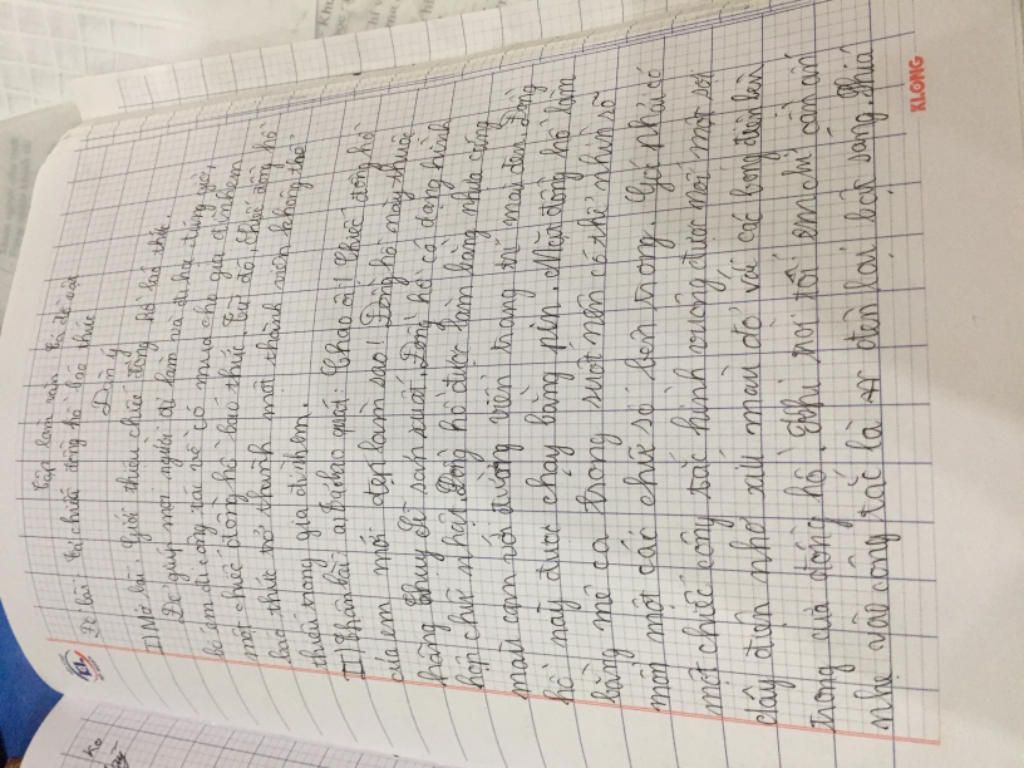 Tập làm văn: Tả đồ vật
Đề bài: Tả chiếc đồng hồ báo thức
Dàn ý
I) Mở bài: Giới thiệu chiếc đồng hồ báo thức.
Để giúp mọi người đi làm và đi học đúng giờ,
bố em đi công tác về có mua cho gia đình em
một chiếc đồng hồ báo thức. Từ đó, chiếc đồng hồ
báo thức trở thành một thành viên không thể
thiếu trong gia đình em.
II) Thân bài: a) Tả bao quát: Chao ôi! Chiếc đồng hồ
của em mới đẹp làm sao! Đồng hồ này thuộc
hãng Thụy Sĩ sản xuất. Đồng hồ có dạng hình
hộp chữ nhật. Đồng hồ được làm bằng nhựa cứng
màu cam với đường viền trang trí màu đen. Đồng
hồ này được chạy bằng pin. Mặt đồng hồ làm
bằng mê ca trong suốt nên có thể nhìn rõ
mồn một các chữ số bên trong. Góc phải có
một chiếc công tắc hình vuông được nối một sợi
dây điện nhỏ xíu màu đỏ với các bóng đèn bên
trong của đồng hồ. Khi trời tối em chỉ cần ấn
nhẹ vào công tắc là đèn lại bật sáng. Phía
KLONG